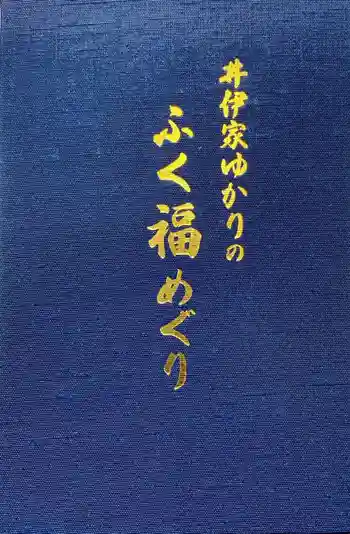 井伊家ゆかりの
ふく福めぐり